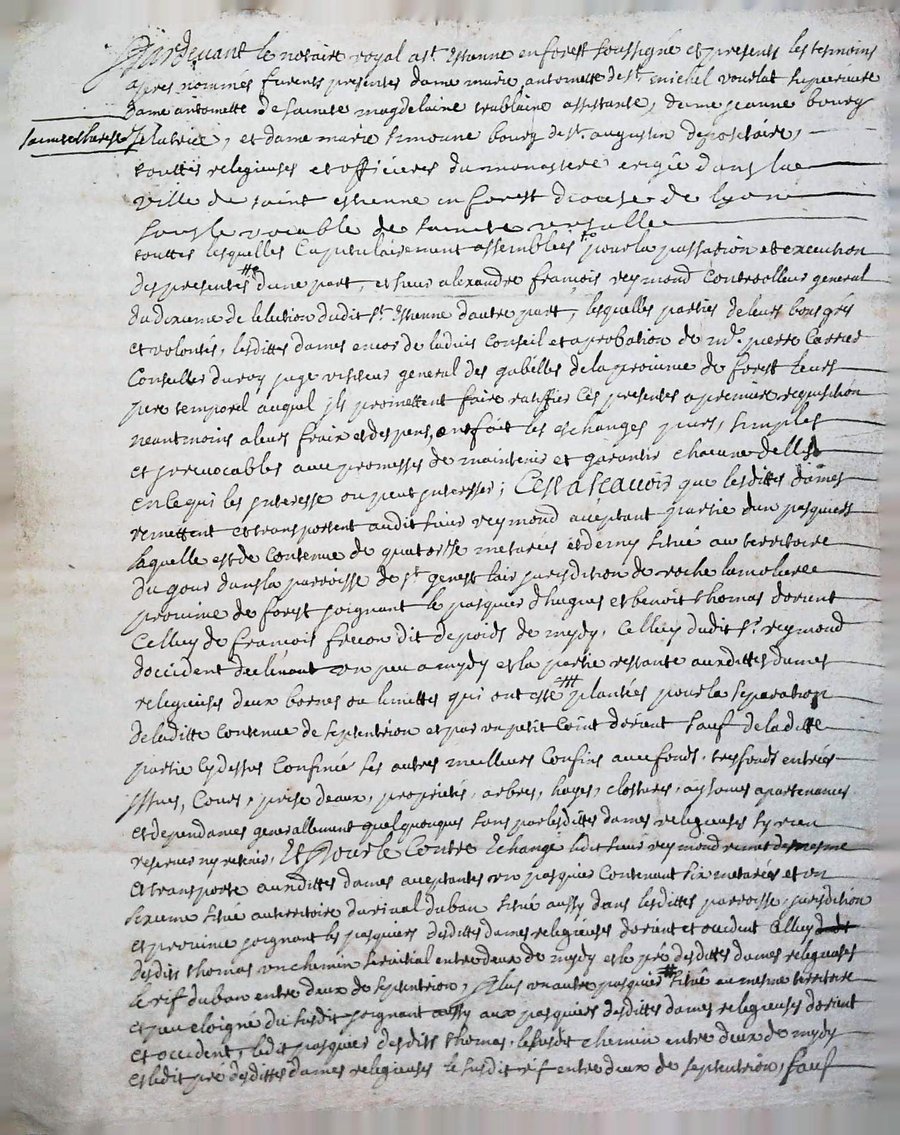 Pardevant le notaire royal a st Estienne en forest soussigné et presents les tesmoins
apres nommés furent presentes dame marie antoinette de st michel vourlat superieure
dame antoinette de sainte magdelaine trublaine assistante, dame jeanne bourg
sainte therese zelatrice, et dame marie simonne bourg de st augustin depositaire,
touttes religieuses et officieres du monastere erigé dans la
ville de saint estienne en forest diocese de lyon
sous le vocable de sainte ursulle
touttes lesquelles capitulairement assemblées pour la passation et execution
des presentes dune part, et sieur alexandre françois reymond controolleur general
du domaine de lelection dudit st Estienne dautre part, lesquelles parties de leurs bons grés
et volontés, lesdittes dames encor de ladvis conseil et aprobation de mr. pierre Carrier
Conseiller du roy juge visiteur general des gabelles de la province de forest leur
pere temporel auquel jls promettent faire ratiffier ces presentes a premiere requisition
neantmoins a leurs fraix et despens, ont fait les eschanges purs, simples
et jrrevocables avec promesses de maintenir et garantir chacune delles
en ce qui les jnteresse ou peut jnteresser; Cest a sçavoir que lesdittes dames
remettent et transportent audit sieur reymond acceptant partie dun pasquier
laquelle est de contenue de quatorse metarées et demy situé au territoire
du gour dans la parroisse de st genest lair jurisdition de roche la moliere
province de forest joignant le pasquier dhugues et benoit thomas dorient
Celluy de francois frecon dit de poids de mydy, Celluy dudit sr. reymond
doccident declinant un peu a mydy et la partie restante auxdittes dames
religieuses deux bornes ou limittes qui ont esté plantées pour la separation
de laditte contenue de septentrion et par un petit coint dorient sauf de laditte
partie cy dessus confinée ses autres meilleurs confins avec fonds, tresfonds entrées
jssues, cours, prise deaux, proprietés, arbres, hayes, clostures, aysances apartenances
et dependances generallement quelquonques sans par lesdittes dames religieuses sy rien
reserver ny retenir, Et Pour le Contre Echange ledit sieur reymond remet de mesme
et transporte auxdittes dames acceptantes un pasquier contenant six metarées et un
sixieme situé au territoire du rival du ban situé aussy dans lesdittes parroisse, jurisdition
et province joignant les pasquiers desdittes dames religieuses dorient et occident celluy
desdits thomas un chemin servicial entre deux de mydy et le pré desdittes dames religieuses
le rif du ban entre deux de septentrion, Plus un autre pasquier situé au mesme territoire
et peu eloigné du susdit joignant aussy aux pasquiers desdittes dames religieuses dorient
et occident, ledit pasquier desdits thomas, le susdit chemin entre deux de mydy
et ledit pré desdittes dames religieuses le susdit rif entre deux de septentrion, sauf